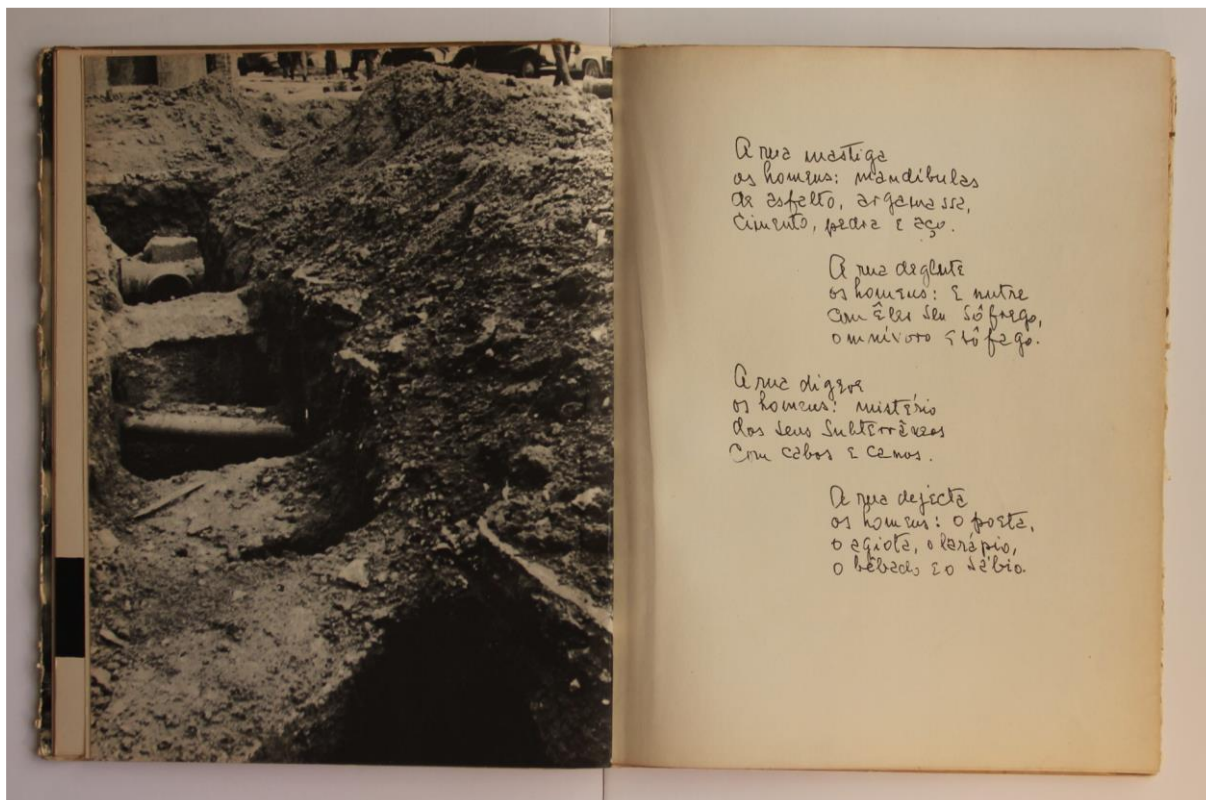 A rua mastiga
os homens: mandíbulas
de asfalto, argamassa,
cimento, pedra e aço.
A rua deglute
os homens: e nutre
com êles seu sôfrego,
omnívoro esôfago.
A rua digere
os homens: mistério
dos seus subterrâneos
com cabos e canos.
A rua dejecta
os homens: o poeta,
o agiota, o larápio,
o bêbado e o sábio.